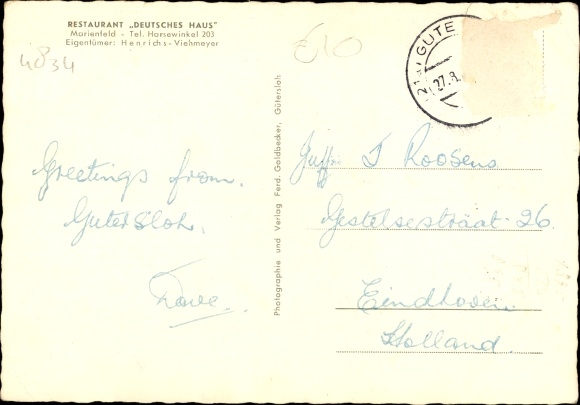 RESTAURANT „DEUTSCHES HAUS"
Marienfeld - Tel. Harsewinkel 203
Eigentümer: Henrichs-Viehmeyer
4834
£10
GUTE
27.8.
Photographie und Verlag Ferd. Goldbecker, Gütersloh
Greetings from.
Gutersloh.
Juffr. J Roosens
Gestelsestraat. 26.
Eindhoven.
Holland.